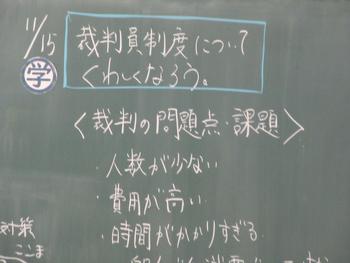 11/15
学
裁判員制度について
くわしくなろう。
〈裁判の問題点・課題〉
・人数が少ない
・費用が高い
・時間がかかりすぎる
対策